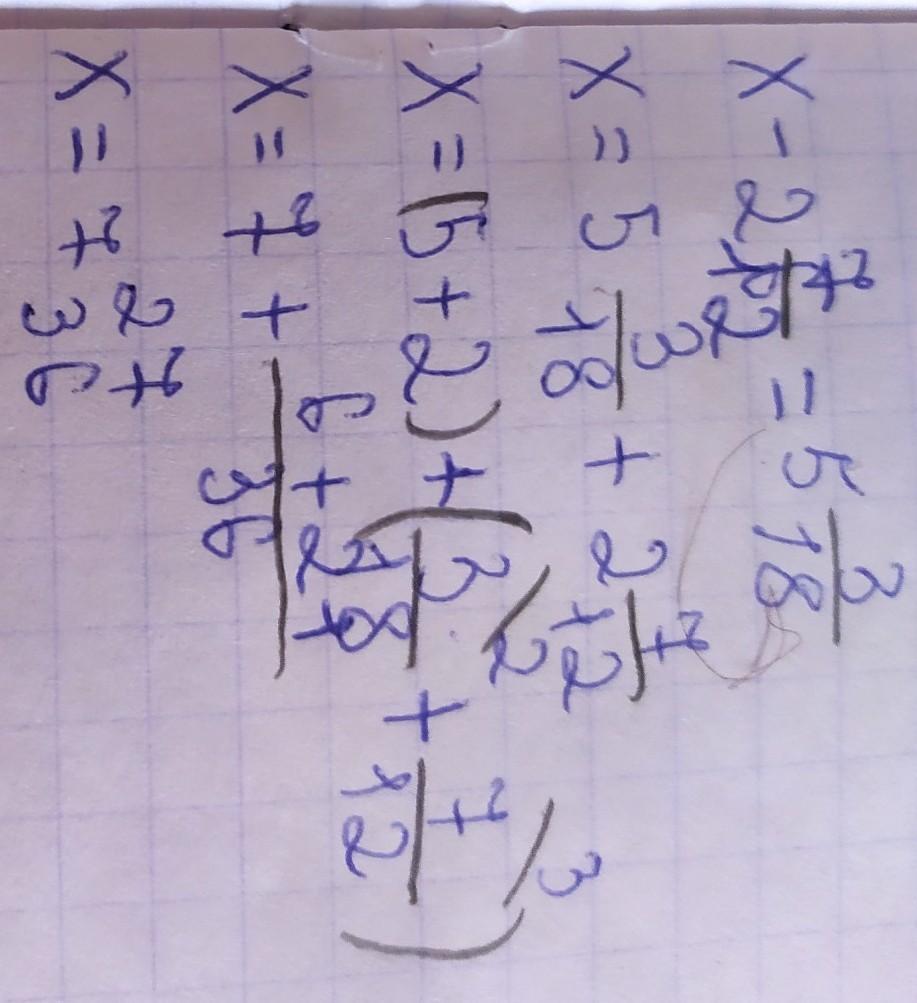 x - 2 7/12 = 5 3/18
x = 5 3/18 + 2 7/12
x = (5 + 2) + (3/18 \2 + 7/12 \3)
x = 7 + (6 + 21)/36
x = 7 27/36